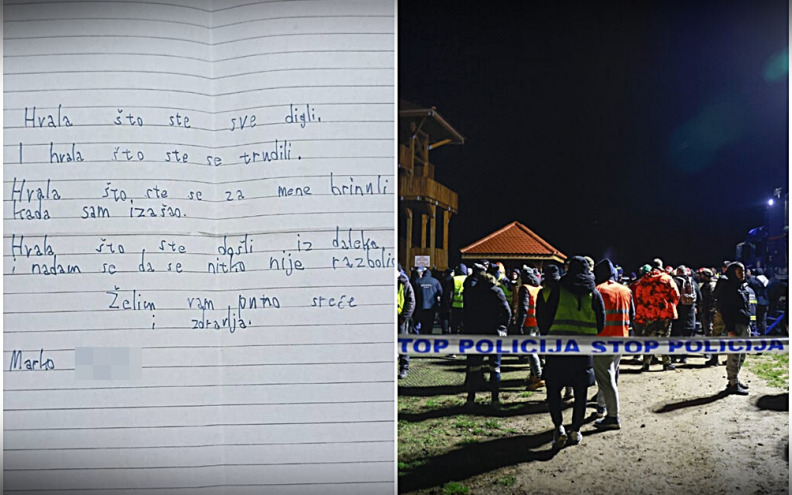 Hvala što ste sve digli.
I hvala što ste se trudili.
Hvala što ste se za mene brinuli
kada sam izašao.
Hvala što ste došli iz daleka,
i nadam se da se nitko nije razbolio
Želim vam puno sreće
i zdravlja.
Marko
STOP POLICIJA STOP POLICIJA